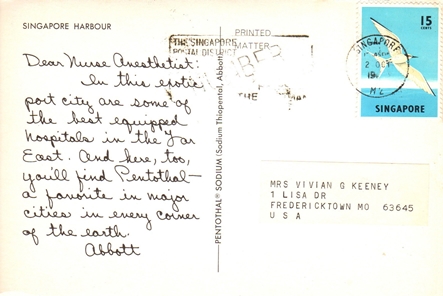 SINGAPORE HARBOUR
Dear Nurse Anesthetist:
In this exotic
port city are some of
the best equipped
hospitals in the Far
East. And here, too,
you'll find Pentothal—
a favorite in major
cities in every corner
of the earth.
Abbott
PENTOTHAL® SODIUM (Sodium Thiopental, Abbott)
PRINTED
MATTER
THE SINGAPORE
POSTAL DISTRICT
THE
SINGAPORE
2 OCT
15
CENTS
SINGAPORE
MRS VIVIAN G KEENEY
1 LISA DR
FREDERICKTOWN MO 63645
U S A